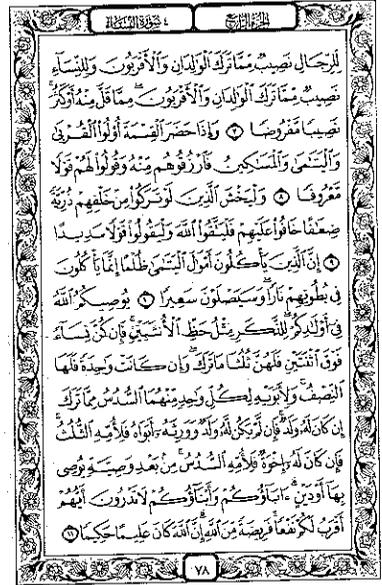 الجزء الرابع
٤ سورة النساء
لِّلرِّجَالِ نَصِيبٌ مِّمَّا تَرَكَ ٱلْوَٰلِدَانِ وَٱلْأَقْرَبُونَ وَلِلنِّسَآءِ
نَصِيبٌ مِّمَّا تَرَكَ ٱلْوَٰلِدَانِ وَٱلْأَقْرَبُونَ مِمَّا قَلَّ مِنْهُ أَوْ كَثُرَ ۚ
نَصِيبًا مَّفْرُوضًا ۝٧ وَإِذَا حَضَرَ ٱلْقِسْمَةَ أُو۟لُوا۟ ٱلْقُرْبَىٰ
وَٱلْيَتَٰمَىٰ وَٱلْمَسَٰكِينُ فَٱرْزُقُوهُم مِّنْهُ وَقُولُوا۟ لَهُمْ قَوْلًا
مَّعْرُوفًا ۝٨ وَلْيَخْشَ ٱلَّذِينَ لَوْ تَرَكُوا۟ مِنْ خَلْفِهِمْ ذُرِّيَّةً
ضِعَٰفًا خَافُوا۟ عَلَيْهِمْ فَلْيَتَّقُوا۟ ٱللَّهَ وَلْيَقُولُوا۟ قَوْلًا سَدِيدًا
۝٩ إِنَّ ٱلَّذِينَ يَأْكُلُونَ أَمْوَٰلَ ٱلْيَتَٰمَىٰ ظُلْمًا إِنَّمَا يَأْكُلُونَ
فِى بُطُونِهِمْ نَارًا ۖ وَسَيَصْلَوْنَ سَعِيرًا ۝١٠ يُوصِيكُمُ ٱللَّهُ
فِىٓ أَوْلَٰدِكُمْ ۖ لِلذَّكَرِ مِثْلُ حَظِّ ٱلْأُنثَيَيْنِ ۚ فَإِن كُنَّ نِسَآءً
فَوْقَ ٱثْنَتَيْنِ فَلَهُنَّ ثُلُثَا مَا تَرَكَ ۖ وَإِن كَانَتْ وَٰحِدَةً فَلَهَا
ٱلنِّصْفُ ۚ وَلِأَبَوَيْهِ لِكُلِّ وَٰحِدٍ مِّنْهُمَا ٱلسُّدُسُ مِمَّا تَرَكَ
إِن كَانَ لَهُۥ وَلَدٌ ۚ فَإِن لَّمْ يَكُن لَّهُۥ وَلَدٌ وَوَرِثَهُۥٓ أَبَوَاهُ فَلِأُمِّهِ ٱلثُّلُثُ ۚ
فَإِن كَانَ لَهُۥٓ إِخْوَةٌ فَلِأُمِّهِ ٱلسُّدُسُ ۚ مِنۢ بَعْدِ وَصِيَّةٍ يُوصِى
بِهَآ أَوْ دَيْنٍ ۗ ءَابَآؤُكُمْ وَأَبْنَآؤُكُمْ لَا تَدْرُونَ أَيُّهُمْ
أَقْرَبُ لَكُمْ نَفْعًا ۚ فَرِيضَةً مِّنَ ٱللَّهِ ۗ إِنَّ ٱللَّهَ كَانَ عَلِيمًا حَكِيمًا ۝١١
٧٨